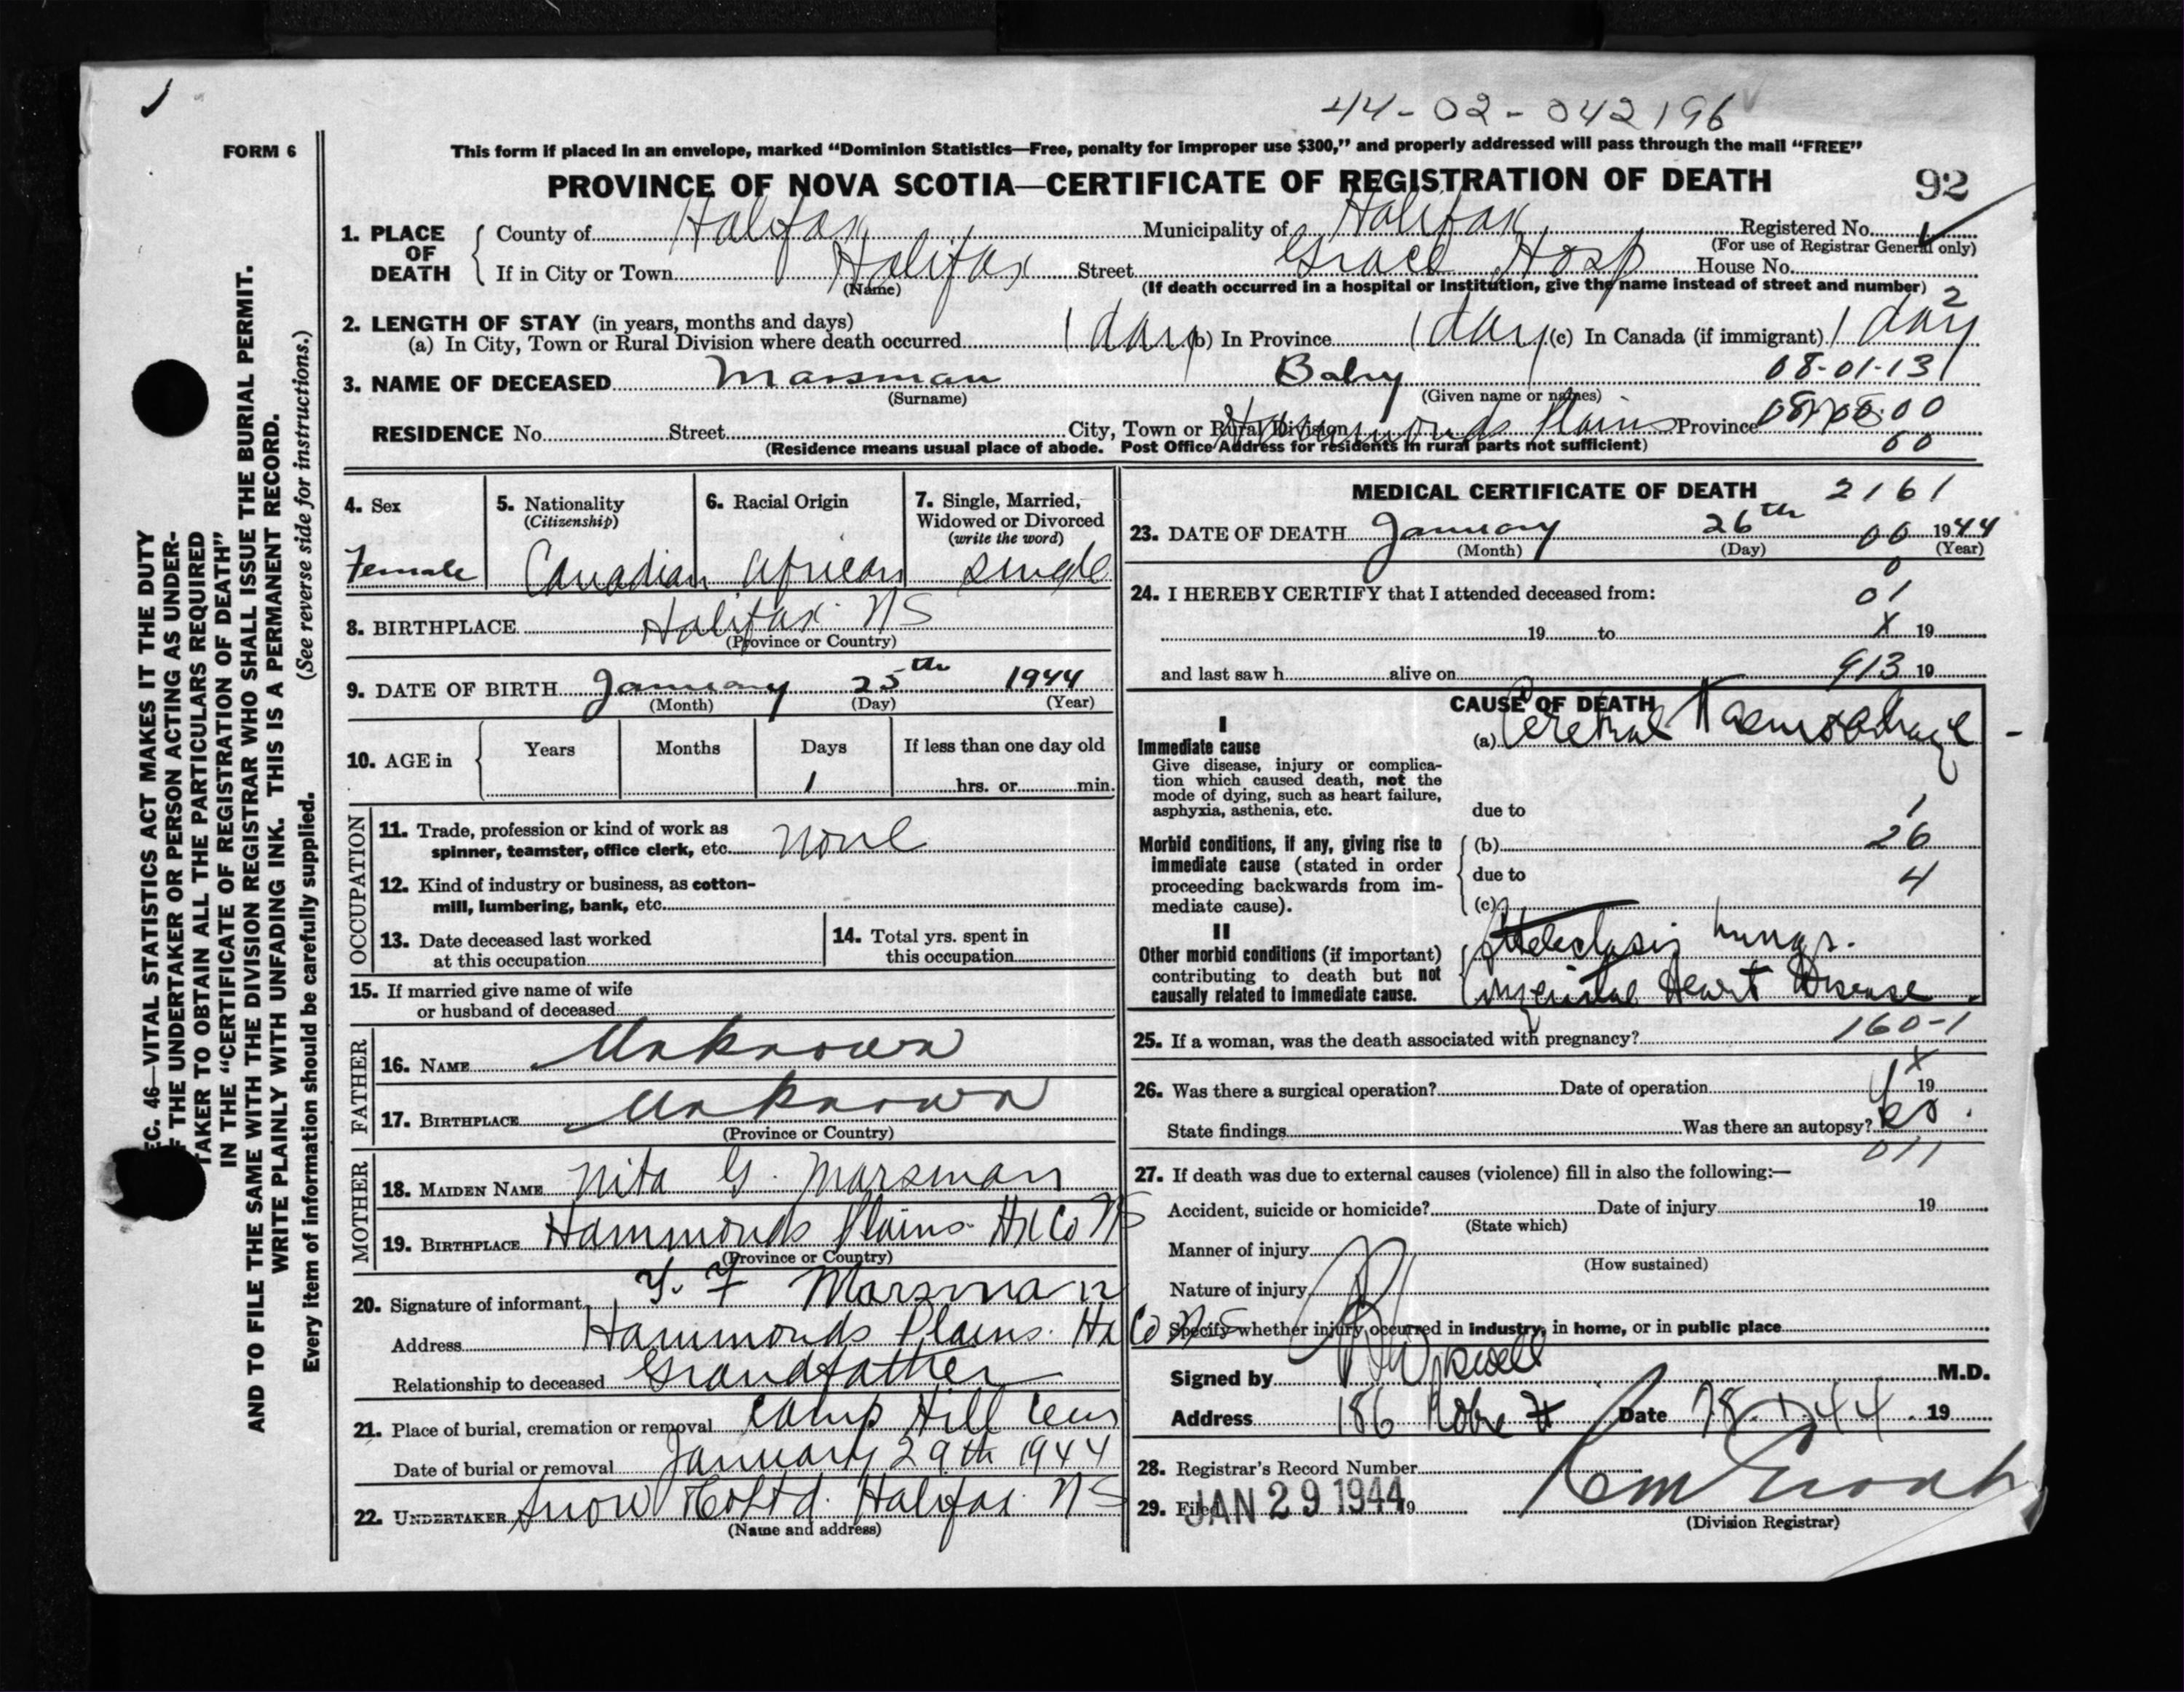 44-02-042196
FORM 6
This form if placed in an envelope, marked “Dominion Statistics—Free, penalty for improper use $300,” and properly addressed will pass through the mail “FREE”
PROVINCE OF NOVA SCOTIA—CERTIFICATE OF REGISTRATION OF DEATH 92
1. PLACE OF DEATH County of Halifax Municipality of Halifax Registered No.
(For use of Registrar General only)
If in City or Town Halifax Street Grace Hosp House No.
(Name) (If death occurred in a hospital or institution, give the name instead of street and number) 2
2. LENGTH OF STAY (in years, months and days)
(a) In City, Town or Rural Division where death occurred 1 day (b) In Province 1 day (c) In Canada (if immigrant) 1 day
3. NAME OF DECEASED Marsman Baby 08-01-131
(Surname) (Given name or names)
RESIDENCE No. Street City, Town or Rural Division Hammonds Plains Province
(Residence means usual place of abode. Post Office Address for residents in rural parts not sufficient) 00
4. Sex Female
5. Nationality (Citizenship) Canadian
6. Racial Origin African
7. Single, Married, Widowed or Divorced (write the word) single
8. BIRTHPLACE Halifax NS
(Province or Country)
9. DATE OF BIRTH January 25th 1944
(Month) (Day) (Year)
10. AGE in Years Months Days If less than one day old
1 hrs. or min.
OCCUPATION
11. Trade, profession or kind of work as spinner, teamster, office clerk, etc. none
12. Kind of industry or business, as cotton-mill, lumbering, bank, etc.
13. Date deceased last worked at this occupation
14. Total yrs. spent in this occupation
15. If married give name of wife or husband of deceased
FATHER
16. NAME Unknown
17. BIRTHPLACE Unknown
(Province or Country)
MOTHER
18. MAIDEN NAME Nita G. Marsman
19. BIRTHPLACE Hammonds Plains Hx Co NS
(Province or Country)
20. Signature of informant Y. F Marsman
Address Hammonds Plains. Hx Co NS
Relationship to deceased Grandfather
21. Place of burial, cremation or removal Camp Hill Cem
Date of burial or removal January 29th 1944
22. UNDERTAKER Snow & Co Ltd. Halifax NS
(Name and address)
MEDICAL CERTIFICATE OF DEATH 2161
23. DATE OF DEATH January 26th 00 1944
(Month) (Day) (Year)
24. I HEREBY CERTIFY that I attended deceased from: 01
19 to X 19
and last saw h alive on 913 19
CAUSE OF DEATH
I
Immediate cause
Give disease, injury or complication which caused death, not the mode of dying, such as heart failure, asphyxia, asthenia, etc.
(a) Cerebral Haemorrhage
due to 1
Morbid conditions, if any, giving rise to immediate cause (stated in order proceeding backwards from immediate cause).
(b) 26
due to 4
(c)
II
Other morbid conditions (if important) contributing to death but not causally related to immediate cause.
Atelectasis Lungs.
Congenital Heart Disease.
25. If a woman, was the death associated with pregnancy? 160-1
26. Was there a surgical operation? Date of operation X 19
State findings Was there an autopsy? Yes.
011
27. If death was due to external causes (violence) fill in also the following:—
Accident, suicide or homicide? Date of injury 19
(State which)
Manner of injury
(How sustained)
Nature of injury
Specify whether injury occurred in industry, in home, or in public place
Signed by M.D.
Address 186 Robie St Date 28.1.44. 19
28. Registrar's Record Number
29. Filed JAN 29 1944 19
(Division Registrar)
SEC. 46—VITAL STATISTICS ACT MAKES IT THE DUTY
OF THE UNDERTAKER OR PERSON ACTING AS UNDER-
TAKER TO OBTAIN ALL THE PARTICULARS REQUIRED
IN THE “CERTIFICATE OF REGISTRATION OF DEATH”
AND TO FILE THE SAME WITH THE DIVISION REGISTRAR WHO SHALL ISSUE THE BURIAL PERMIT.
WRITE PLAINLY WITH UNFADING INK. THIS IS A PERMANENT RECORD.
Every item of information should be carefully supplied. (See reverse side for instructions.)